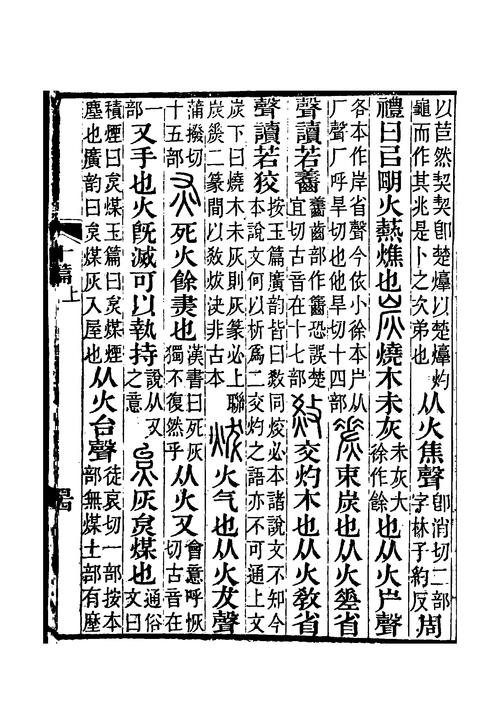 以苣然契契卽楚焞以楚焞灼
龜而作其兆是卜之次弟也
从火焦聲
卽消切二部
字林子約反
周
禮曰㠯朙火爇燋也炭燒木未灰
未灰大
徐作餘
也从火屵聲
各本作岸省聲今依小徐本屵从
厂聲厂呼旱切也他旱切十四部
束炭也从火差省
聲讀若
齒部作恐誤楚
宜切古音在十七部
交灼木也从火敎省
聲讀若狡
按玉篇廣韵皆曰同烄必本諸說文不知今
本說文何以析爲二交灼之語亦不可通上文
炭下曰燒木未灰則灰篆必上聯
炭二篆間以炦決非古本
炦火气也从火犮聲
蒲撥切
十五部
灰死火餘㶳也
漢書曰死灰
獨不復然乎
从火又
會意呼恢
切古音在
一
部
又手也火旣滅可以執持
說从又
之意
炱灰炱煤也
通俗
文曰
積煙曰炱煤玉篇曰炱煤煙
塵也廣韵曰炱煤灰入屋也
从火台聲
徒哀切一部按本
部無煤土部有塺
十篇上